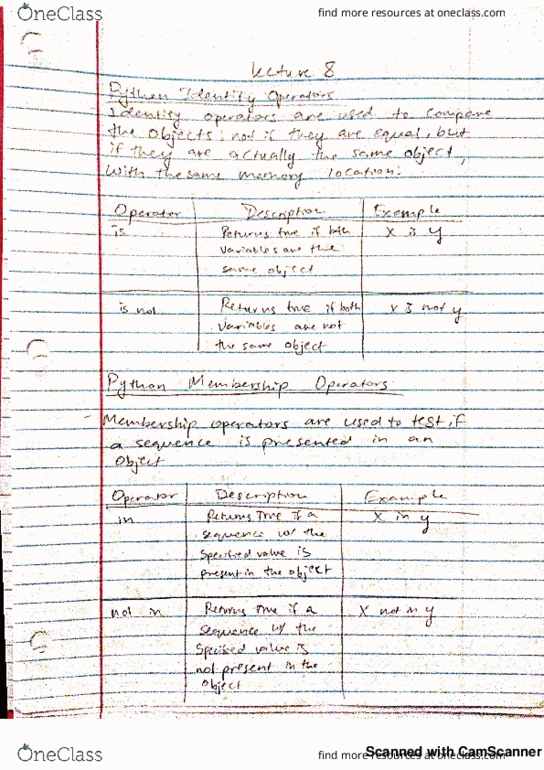 OneClass
find more resources at oneclass.com
Lecture 8
Python Identity Operators
Identity operators are used to compare
the objects, not if they are equal, but
if they are actually the same object,
with the same memory location.
Operator Description Example
is Returns true if both X is y
variables are the
same object
is not Returns true if both X is not y
variables are not
the same object
Python Membership Operators
- Membership operators are used to test if
a sequence is presented in an
object
Operator Description Example
in Returns True if a X in y
sequence w/ the
specified value is
present in the object
not in Returns true if a X not in y
sequence w/ the
specified value is
not present in the
object
OneClass
find more resources at oneclass.com
Scanned with CamScanner